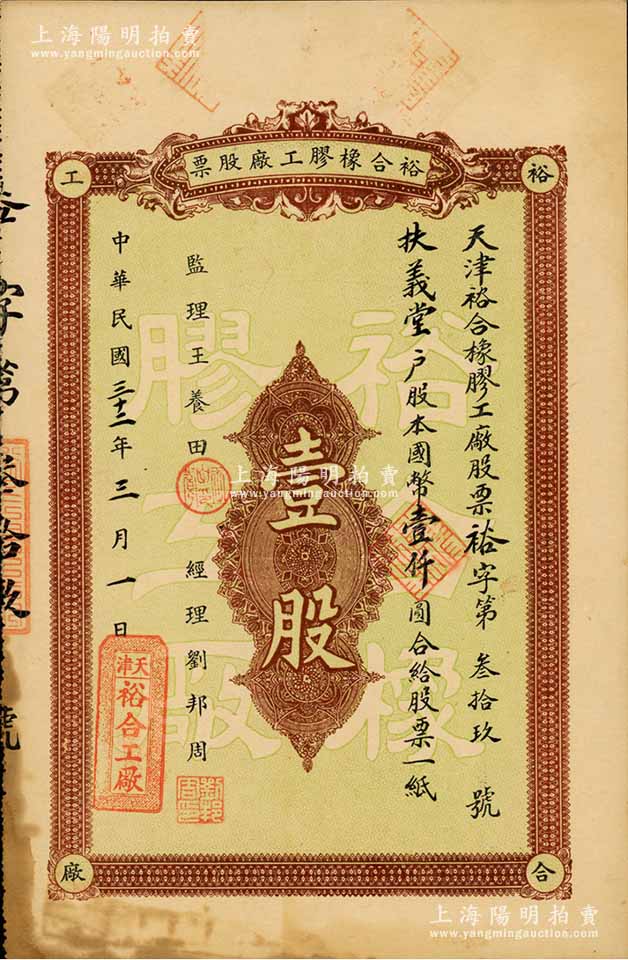 上海陽明拍賣
www.yangmingauction.com
裕合橡膠工廠股票
裕
合
工
廠
天津裕合橡膠工廠股票裕字第叁拾玖號
扶義堂戶股本國幣壹仟圓合給股票一紙
壹股
監理王養田
經理劉邦周
中華民國三十二年三月一日
天津
裕合工廠
劉邦周印
裕合橡膠工廠
裕字第叁拾玖號
上海陽明拍賣
www.yangmingauction.com
上海陽明拍賣
www.yangmingauction.com